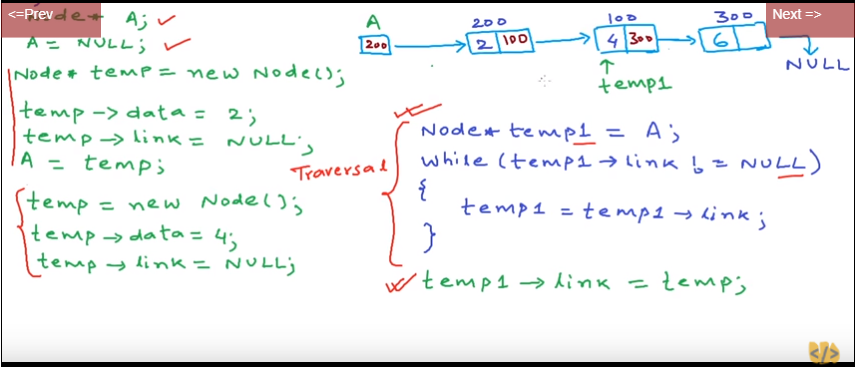 <=Prev
Next =>
Node* A;
A = NULL;
Node* temp = new Node();
temp -> data = 2;
temp → link = NULL;
A = temp;
temp = new Node();
temp → data = 4;
temp → link = NULL;
A
200
200
2 100
100
4 300
300
6
NULL
↑
temp1
Traversal
Node* temp1 = A;
while (temp1 → link != NULL)
{
temp1 = temp1 → link;
}
temp1 → link = temp;
</>